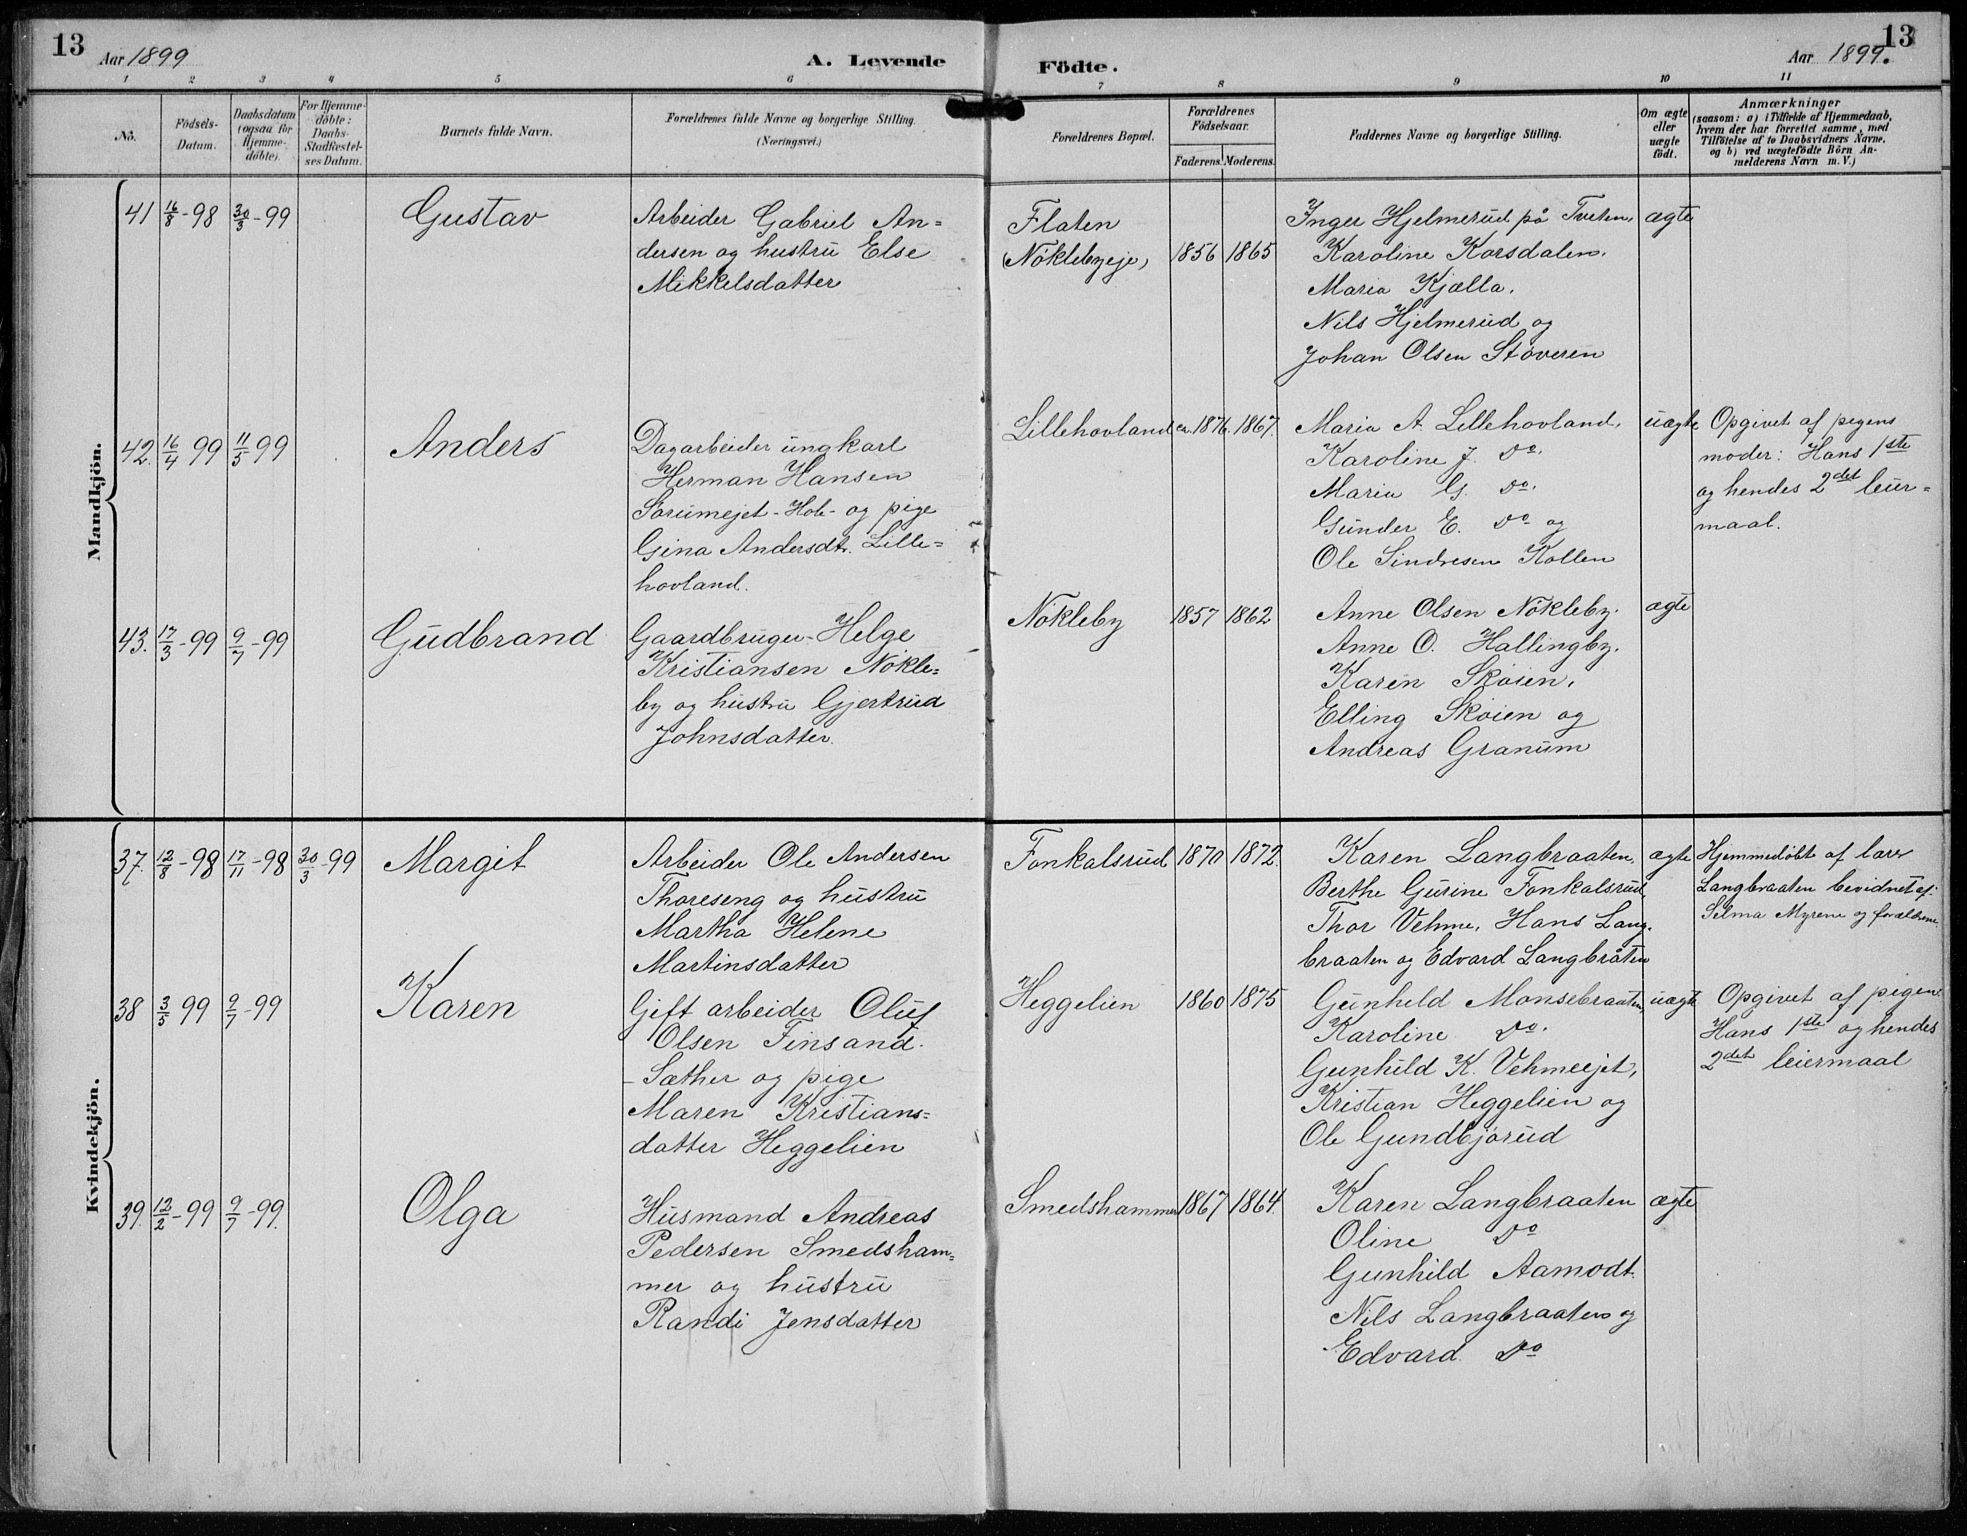 13
Aar 1899
A. Levende
Födte.
Aar 1899.
13
1 2 3 4 5 6 7 8 9 10 11
Nö.
Födsels-
Datum.
Daabsdatum
(ogsaa for
Hjemme-
døbte).
For Hjemme-
døbte:
Daabs-
Stadfestel-
ses Datum.
Barnets fulde Navn.
Forældrenes fulde Navne og borgerlige Stilling.
(Næringsvei.)
Forældrenes Bopæl.
Forældrenes
Födselsaar.
Faderens. Moderens.
Faddernes Navne og borgerlige Stilling.
Om ægte
eller
uægte
født.
Anmærkninger
(saasom: a) i Tilfælde af Hjemmedaab,
hvem der har forrettet samme, med
Tilføielse af to Daabsvidners Navne,
og b) ved uægtefödte Börn An-
melderens Navn m. V.)
Mandkjön.
41 16/8-98 30/3-99
Gustav
Arbeider Gabriel An=
dersen og hustru Else
Mikkelsdatter
Flaten
(Nöklebyeje)
1856 1865
Inger Hjelmerud på Tveten,
Karoline Korsdalen,
Maria Kjælla,
Nils Hjelmerud og
Johan Olsen Støveren
ægte
42. 16/4 99 11/5 99
Anders
Dagarbeider ungkarl
Herman Hansen
Sørumejet-Hole- og pige
Gina Andersdtr. Lille=
hovland.
Lillehovland
ca. 1876. 1867.
Maria A. Lillehovland,
Karoline J. do.
Maria G. do.
Gunder E. do og
Ole Sindresen Kollen
uægte
Opgivet af pigens
moder: Hans 1ste
og hendes 2det leier=
maal.
43. 17/3-99 9/7-99
Gudbrand
Gaardbruger Helge
Kristiansen Nökle=
by og hustru Gjertrud
Johnsdatter.
Nökleby
1857 1862
Anne Olsen Nökleby.
Anne O. Hallingby.
Karen Skøien,
Elling Skøien og
Andreas Granum
ægte
Kvindekjön.
37. 12/8-98 17/11-98 30/3-99
Margit
Arbeider Ole Andersen
Thoreseng og hustru
Martha Helene
Martinsdatter
Fonkalsrud
1870 1872.
Karen Langbraaten.
Berthe Gurine Fonkalsrud,
Thor Vehme, Hans Lang-
braaten og Edvard Langbråten
ægte
Hjemmedöbt af lærer
Langbraaten bevidnet af
Selma Myrene og forældrene.
38 3/5 99 9/7-99
Karen
Gift arbeider Oluf
Olsen Finsand.
-Sæther og pige
Maren Kristians=
datter Heggelien
Heggelien
1860 1875
Gunhild Monsebraaten,
Karoline do.
Gunhild K. Vehmeejet,
Kristian Heggelien og
Ole Gundbjørud
uægte
Opgivet af pigen
Hans 1ste og hendes
2det leiermaal
39. 12/2-99 9/7-99.
Olga
Husmand Andreas
Pedersen Smedsham=
mer og hustru
Randi Jensdatter
Smedshammer
1867 1864.
Karen Langbraaten
Oline do
Gunhild Aamodt.
Nils Langbraaten og
Edvard do
ægte